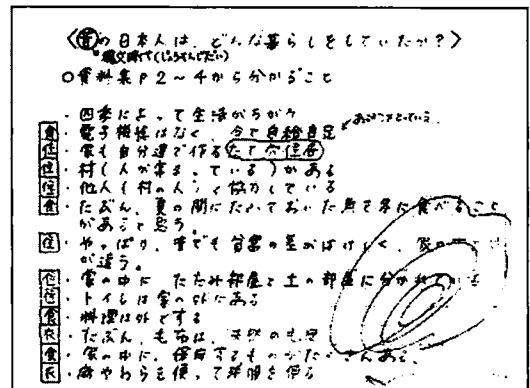 〈昔の日本人は、どんな暮らしをしていたか?〉
縄文時代(じょうもんじだい)
○資料集P2〜4から分かること
・四季によって生活がちがう
食・電子機械はなく、全て自給自足
住・家も自分達で作る たて穴住居
住・村(人が集っている)がある
住・他人(村の人)と協力している
食・たぶん、夏の間にたいておいた魚を冬に食べること
があると思う。
住・やっぱり、昔でも貧富の差がはげしく、家の
が違う。
住・家の中に たたみ部屋と土の部屋に分かれて
住・トイレは家の外にある
食・料理は外でする
衣・たぶん、毛布は、天然の毛皮
食・家の中に、保存するものがたくさんある。
衣・麻やわらを使って